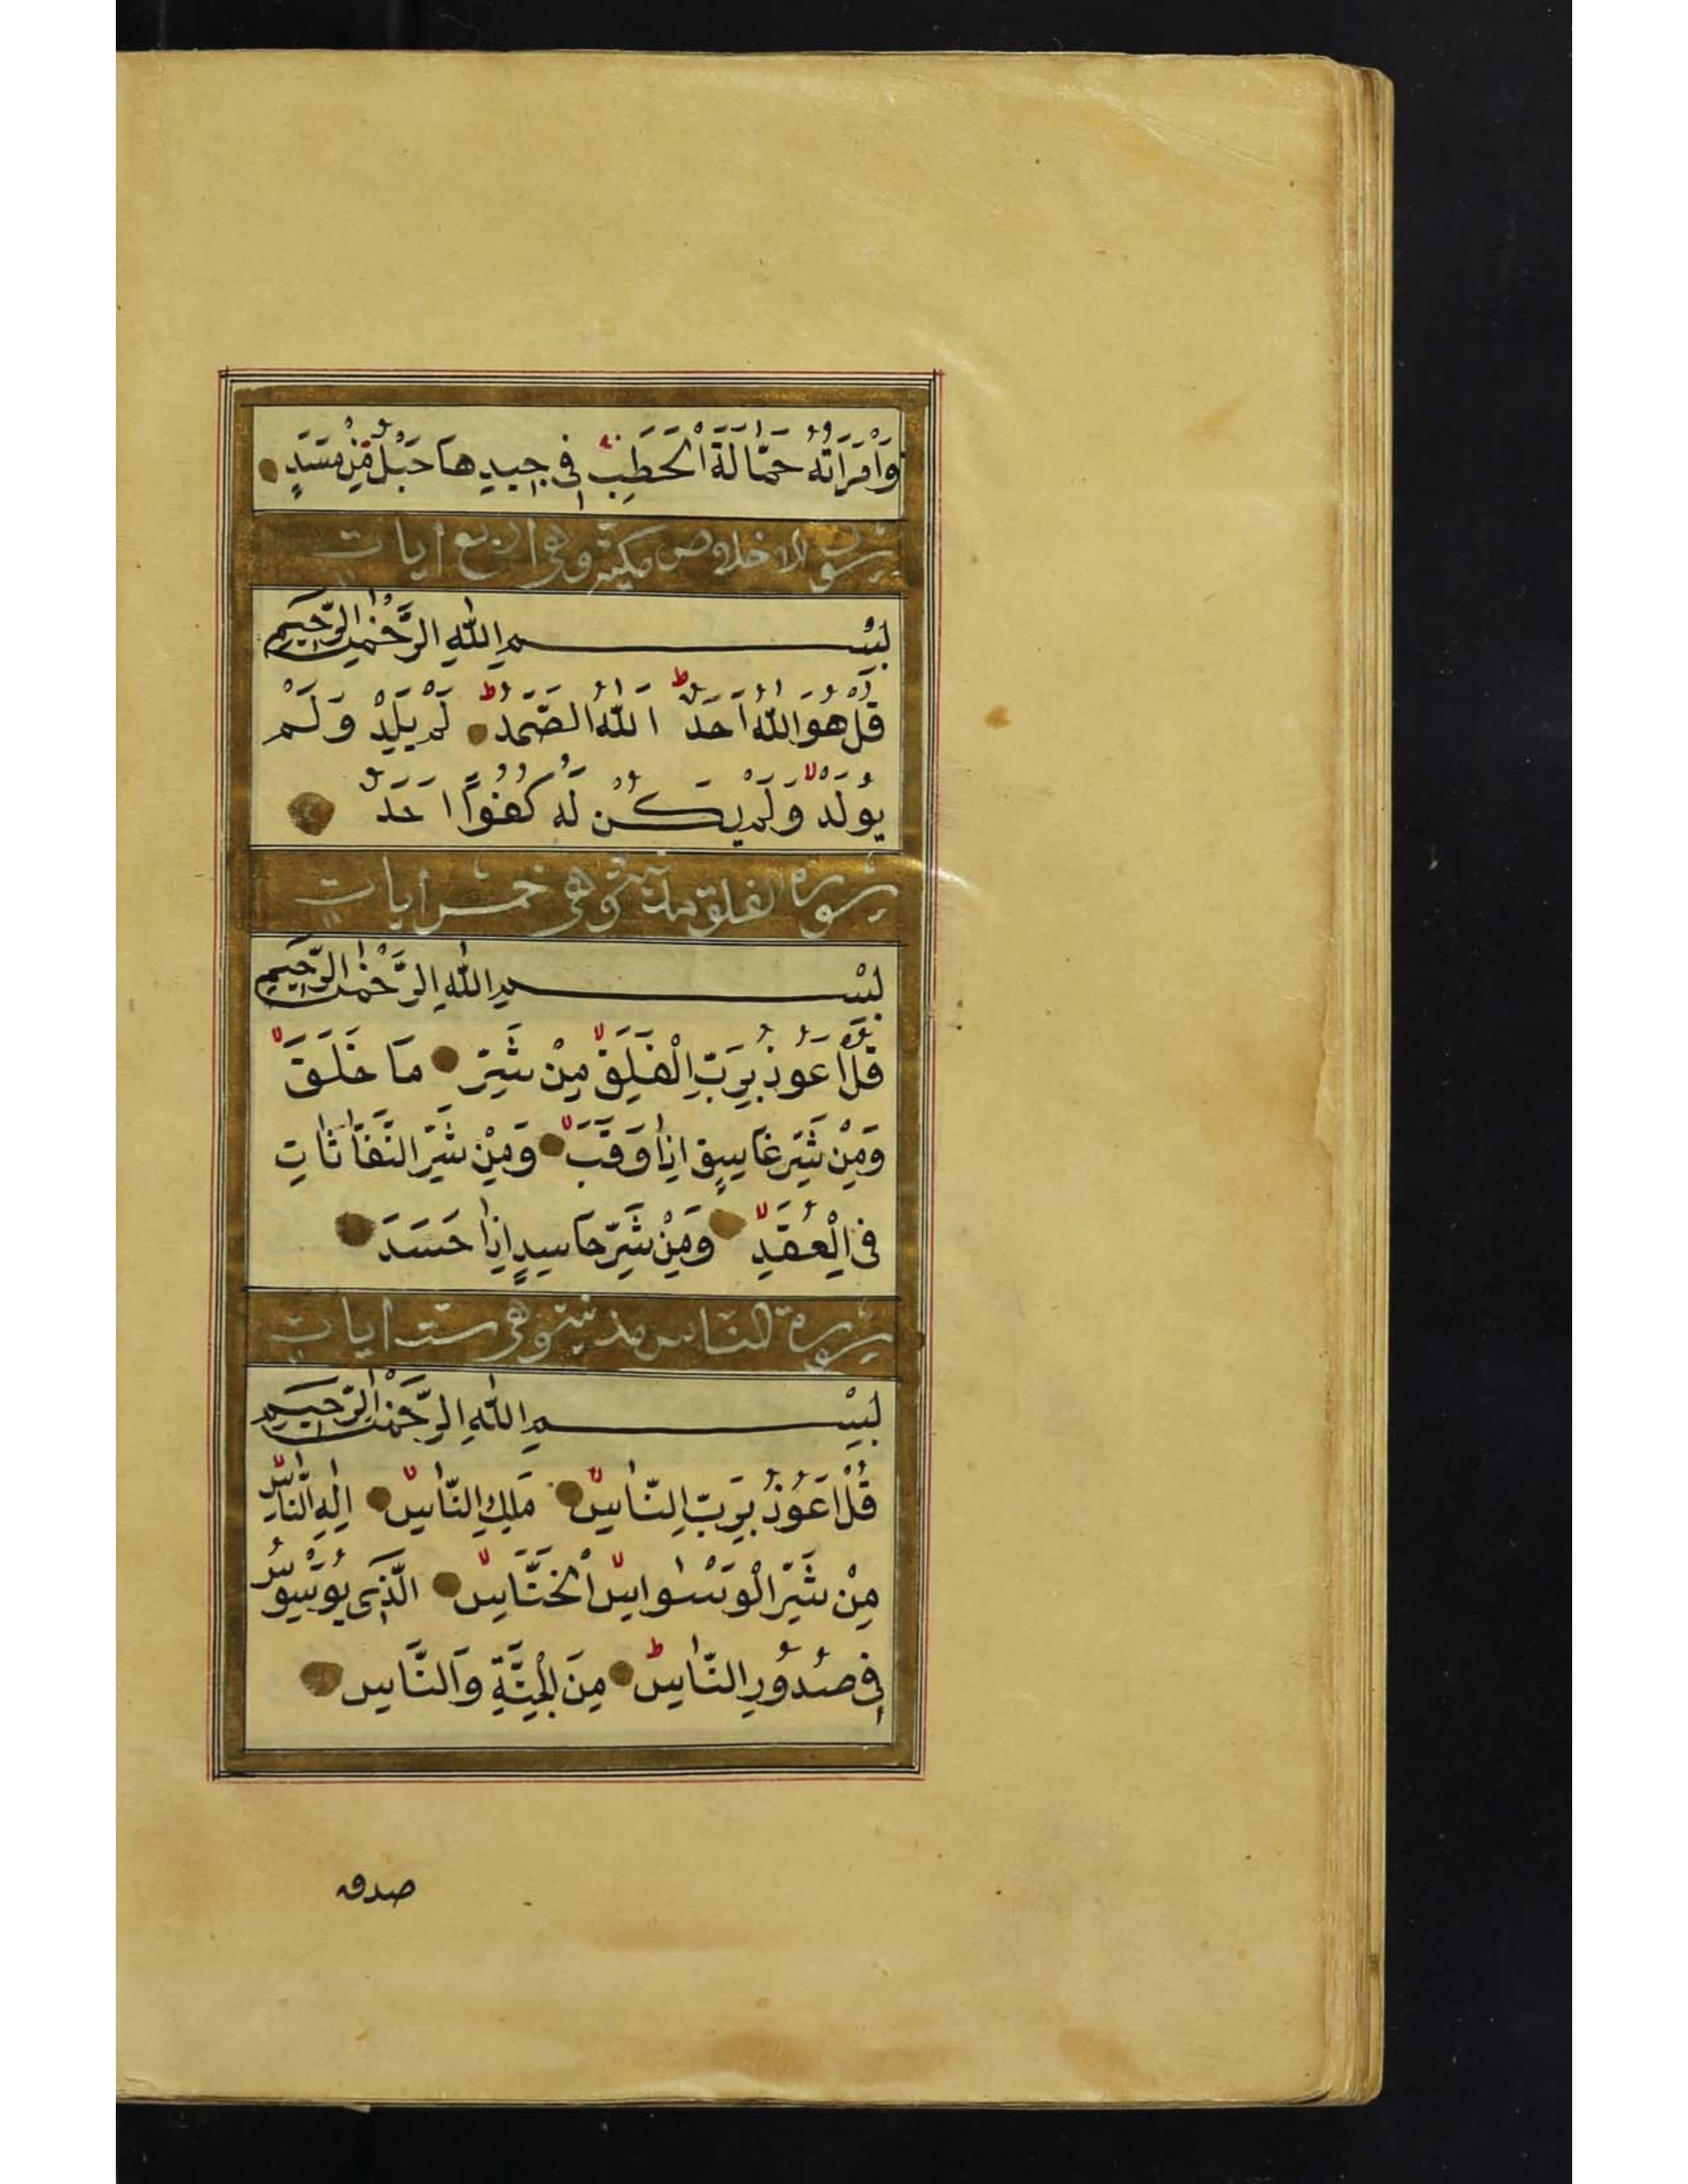 وَامْرَاَتُهُ حَمَّالَةَ الْحَطَبِ فِى جِيدِهَا حَبْلٌ مِنْ مَسَدٍ
سورة الاخلاص مكية وهى اربع ايات
بِسْمِ اللهِ الرَّحْمٰنِ الرَّحِيمِ
قُلْ هُوَ اللهُ اَحَدٌ ط اَللهُ الصَّمَدُ ط لَمْ يَلِدْ وَلَمْ
يُولَدْ لا وَلَمْ يَكُنْ لَهُ كُفُوًا اَحَدٌ
سورة الفلق مدنية وهى خمس ايات
بِسْمِ اللهِ الرَّحْمٰنِ الرَّحِيمِ
قُلْ اَعُوذُ بِرَبِّ الْفَلَقِ لا مِنْ شَرِّ مَا خَلَقَ لا
وَمِنْ شَرِّ غَاسِقٍ اِذَا وَقَبَ لا وَمِنْ شَرِّ النَّفَّاثَاتِ
فِى الْعُقَدِ لا وَمِنْ شَرِّ حَاسِدٍ اِذَا حَسَدَ
سورة الناس مدنية وهى ست ايات
بِسْمِ اللهِ الرَّحْمٰنِ الرَّحِيمِ
قُلْ اَعُوذُ بِرَبِّ النَّاسِ لا مَلِكِ النَّاسِ لا اِلٰهِ النَّاسِ لا
مِنْ شَرِّ الْوَسْوَاسِ لا الْخَنَّاسِ لا الَّذِى يُوَسْوِسُ
فِى صُدُورِ النَّاسِ ط مِنَ الْجِنَّةِ وَالنَّاسِ
صدق